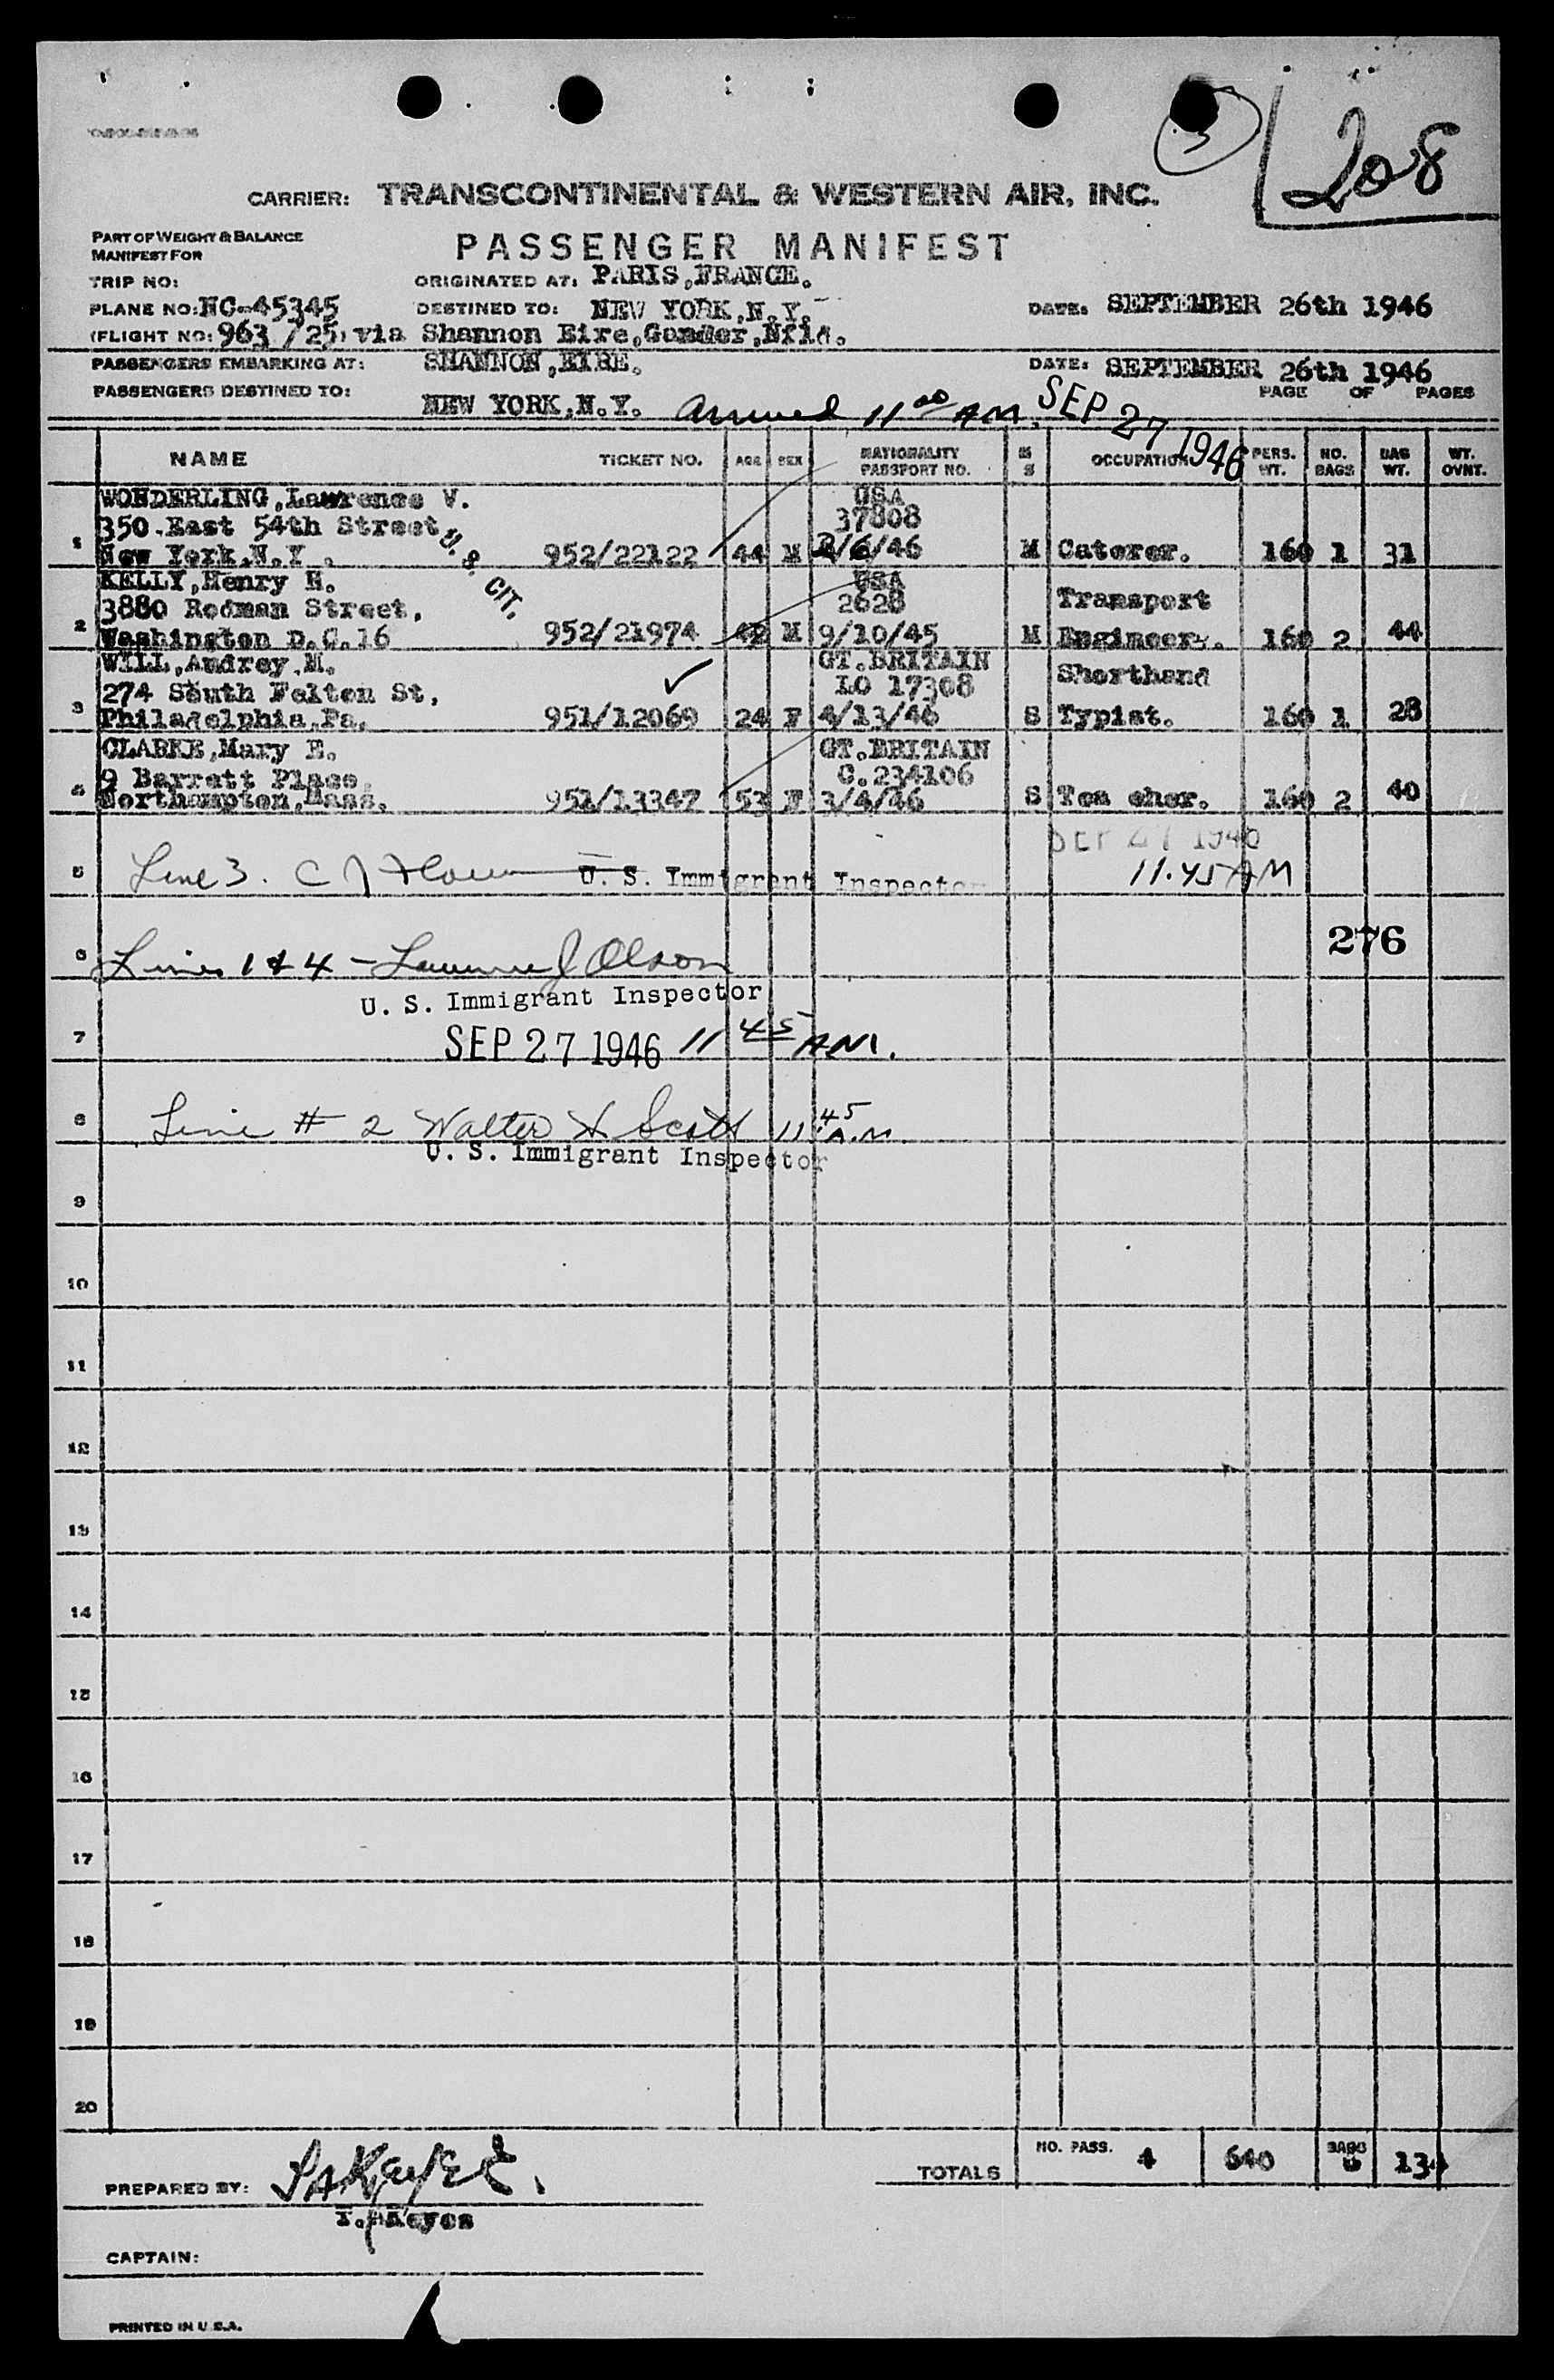 3
208
CARRIER: TRANSCONTINENTAL & WESTERN AIR, INC.
PART OF WEIGHT & BALANCE
MANIFEST FOR
PASSENGER MANIFEST
TRIP NO:
ORIGINATED AT: PARIS,FRANCE.
PLANE NO: NC-45345
DESTINED TO: NEW YORK,N.Y.
DATE: SEPTEMBER 26th 1946
(FLIGHT NO: 963 /25) via Shannon Eire,Gander,Nfld.
PASSENGERS EMBARKING AT: SHANNON,EIRE.
DATE: SEPTEMBER 26th 1946
PASSENGERS DESTINED TO: NEW YORK,N.Y.
PAGE OF PAGES
Arrived 11 00 AM. SEP 27 1946
NAME TICKET NO. AGE SEX NATIONALITY PASSPORT NO. M S OCCUPATION PERS. WT. NO. BAGS BAG WT. WT. OVNT.
WONDERLING,Lawrence V. USA
350 East 54th Street 37808
1 New York,N.Y. 952/22122 44 M 2/6/46 M Caterer. 160 1 31
U. S. CIT.
KELLY,Henry H. USA
3880 Rodman Street, 2628 Transport
2 Washington D.C.16 952/21974 42 M 9/10/45 M Engineer. 160 2 44
WILL,Audrey.M. GT.BRITAIN
274 South Felton St, LO 17308 Shorthand
3 Philadelphia,Pa. 951/12069 24 F 4/13/46 S Typist. 160 1 28
CLARKE,Mary E. GT.BRITAIN
9 Barratt Place, C.234106
4 Northampton,Mass. 951/13347 53 F 3/4/46 S Tea cher. 160 2 40
SEP 27 1946
5 Line 3. U. S. Immigrant Inspector 11.45 AM
276
6 Lines 1 & 4 - Lawrence J Olson
U. S. Immigrant Inspector
7 SEP 27 1946 11 45 AM.
8 Line # 2 Walter H Scott 11 45 A.M.
U. S. Immigrant Inspector
9
10
11
12
13
14
15
16
17
18
19
20
TOTALS NO. PASS. 4 640 BAGS 6 134
PREPARED BY:
Keyes
CAPTAIN:
PRINTED IN U.S.A.